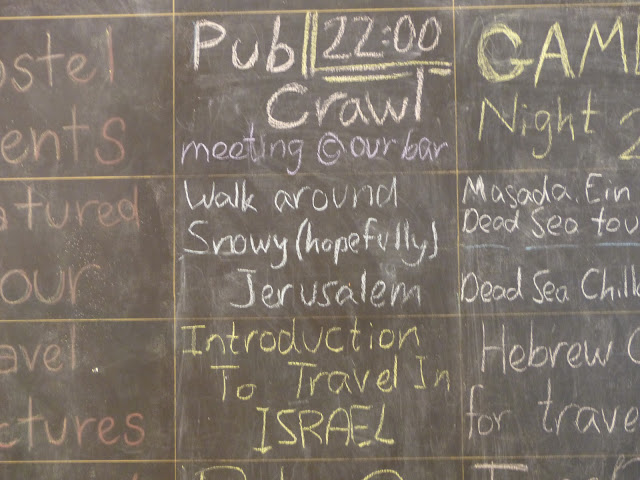 ostel
ents
Pub 22:00
Crawl
meeting @ our bar
GAM
Night 2
atured
our
Walk around
Snowy (hopefully)
Jerusalem
Masada, Ein
Dead Sea tou
Dead Sea Chill
avel
ctures
Introduction
To Travel In
ISRAEL
Hebrew
for trave